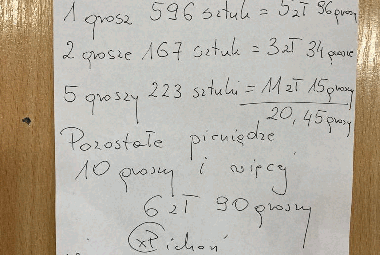 1 grosz 596 sztuk = 5zł 96 groszy
2 grosze 167 sztuk = 3zł 34 grosze
5 groszy 223 sztuki = 11 zł 15 groszy
20,45 groszy
Pozostałe pieniądze
10 groszy i więcej
6 zł 90 groszy
xP Pichoń